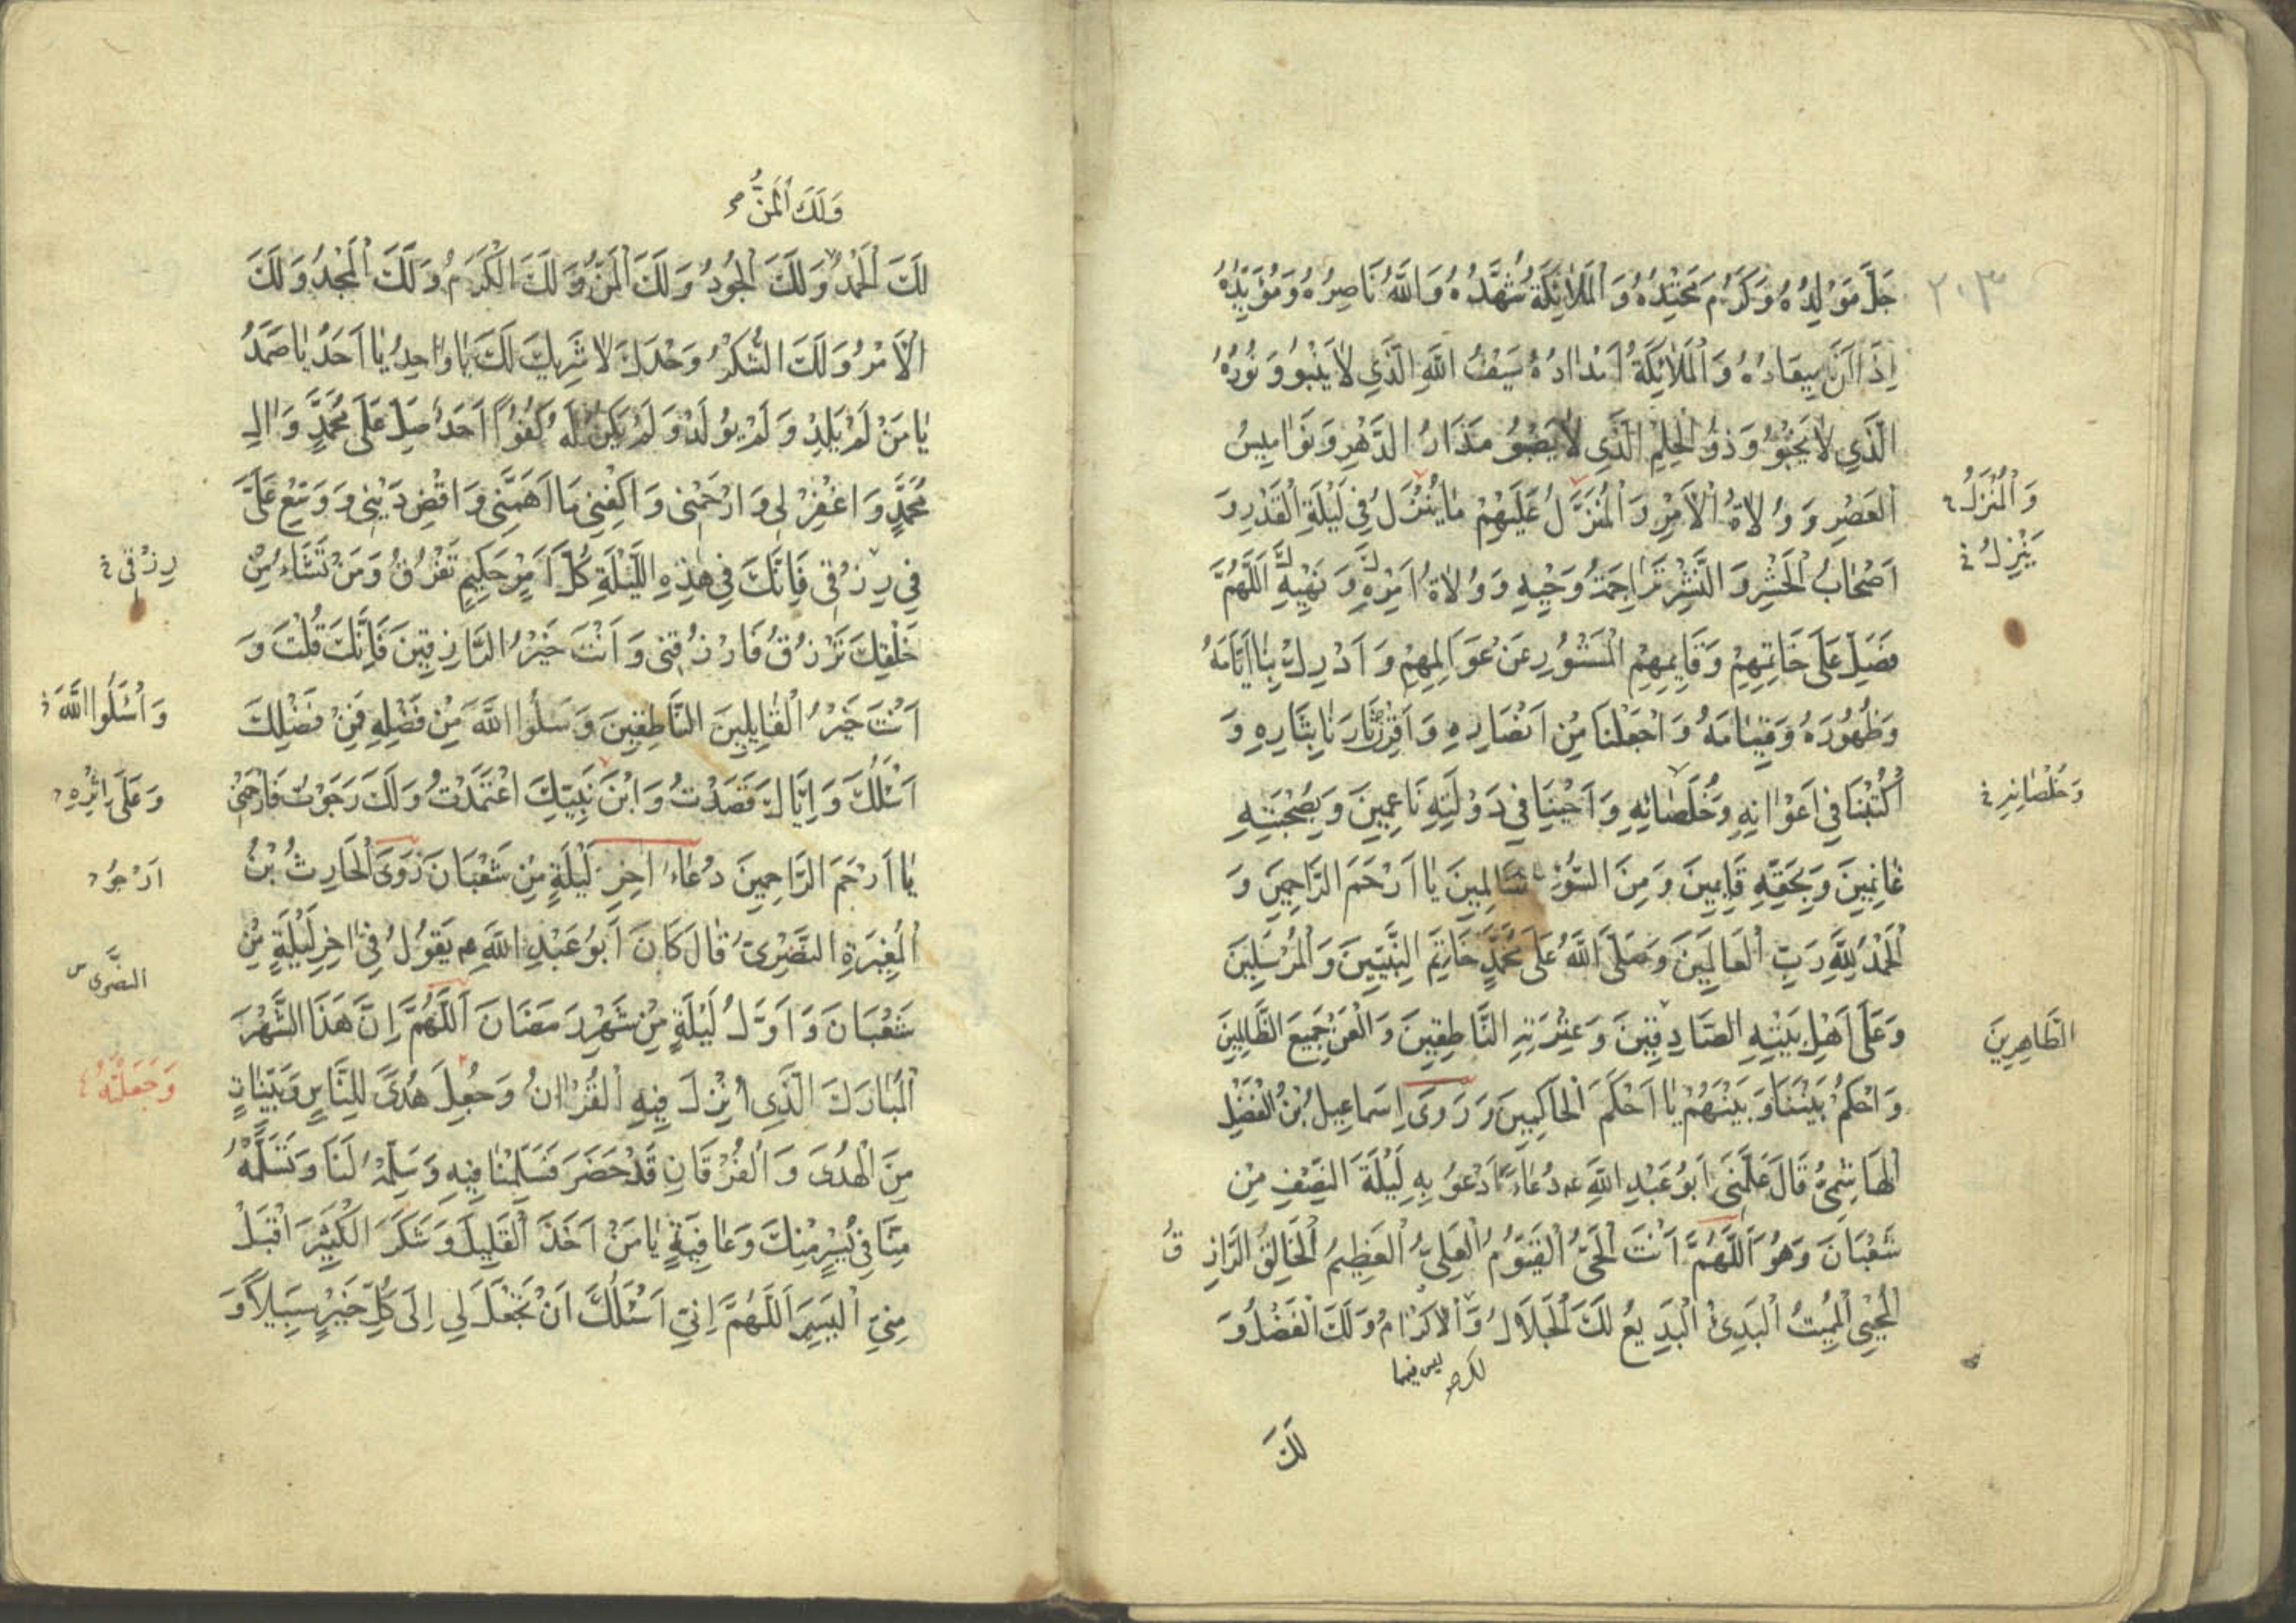 ٢٠٣
جَلَّ مَوْلِدُهُ وَكَرُمَ مَحْتِدُهُ وَالْمَلَائِكَةُ شُهَّدُهُ وَاللّٰهُ نَاصِرُهُ وَمُؤَيِّدُهُ
اِذَا اٰنَ مِيعَادُهُ وَالْمَلَائِكَةُ اَمْدَادُهُ سَيْفُ اللّٰهِ الَّذِي لَا يَنْبُو وَنُورُهُ
الَّذِي لَا يَخْبُو وَذُو الْحِلْمِ الَّذِي لَا يَصْبُو مَدَارُ الدَّهْرِ وَنَوَامِيسُ
الْعَصْرِ وَوُلَاةُ الْاَمْرِ وَالْمُنَزَّلُ عَلَيْهِمْ مَا يُنَزَّلُ فِي لَيْلَةِ الْقَدْرِ وَ
وَالْمُنْزَلُ
يَنْزِلُ
اَصْحَابُ الْحَشْرِ وَالنَّشْرِ تَرَاجِمَةُ وَحْيِهِ وَوُلَاةُ اَمْرِهِ وَنَهْيِهِ اَللّٰهُمَّ
فَصَلِّ عَلَى خَاتِمِهِمْ وَقَائِمِهِمْ الْمَسْتُورِ عَنْ عَوَالِمِهِمْ وَاَدْرِكْ بِنَا اَيَّامَهُ
وَظُهُورَهُ وَقِيَامَهُ وَاجْعَلْنَا مِنْ اَنْصَارِهِ وَاقْرِنْ ثَارَنَا بِثَارِهِ وَ
اكْتُبْنَا فِي اَعْوَانِهِ وَخُلَصَائِهِ وَاَحْيِنَا فِي دَوْلَتِهِ نَاعِمِينَ وَبِصُحْبَتِهِ
وَخُلْصَانِهِ
غَانِمِينَ وَبِحَقِّهِ قَائِمِينَ وَمِنَ السُّوءِ سَالِمِينَ يَا اَرْحَمَ الرَّاحِمِينَ وَ
الْحَمْدُ لِلّٰهِ رَبِّ الْعَالَمِينَ وَصَلَّى اللّٰهُ عَلَى مُحَمَّدٍ خَاتَمِ النَّبِيِّينَ وَالْمُرْسَلِينَ
وَعَلَى اَهْلِ بَيْتِهِ الصَّادِقِينَ وَعِتْرَتِهِ النَّاطِقِينَ وَالْعَنْ جَمِيعَ الظَّالِمِينَ
الطَّاهِرِينَ
وَاحْكُمْ بَيْنَنَا وَبَيْنَهُمْ يَا اَحْكَمَ الْحَاكِمِينَ وَرَوَى اِسْمَاعِيلُ بْنُ الْفَضْلِ
الْهَاشِمِيُّ قَالَ عَلَّمَنِي اَبُو عَبْدِ اللّٰهِ عه دُعَاءً اَدْعُو بِهِ لَيْلَةَ النِّصْفِ مِنْ
شَعْبَانَ وَهُوَ اَللّٰهُمَّ اَنْتَ الْحَيُّ الْقَيُّومُ الْعَلِيُّ الْعَظِيمُ الْخَالِقُ الرَّازِقُ
الْمُحْيِي الْمُمِيتُ الْبَدِيءُ الْبَدِيعُ لَكَ الْجَلَالُ وَالْاِكْرَامُ وَلَكَ الْفَضْلُ وَ
ليس فيهما
لَكَ
وَلَكَ الْمَنُّ
لَكَ الْحَمْدُ وَلَكَ الْجُودُ وَلَكَ الْمَنُّ وَلَكَ الْكَرَمُ وَلَكَ الْمَجْدُ وَلَكَ
الْاَمْرُ وَلَكَ الشُّكْرُ وَحْدَكَ لَا شَرِيكَ لَكَ يَا وَاحِدُ يَا اَحَدُ يَا صَمَدُ
يَا مَنْ لَمْ يَلِدْ وَلَمْ يُولَدْ وَلَمْ يَكُنْ لَهُ كُفُوًا اَحَدٌ صَلِّ عَلَى مُحَمَّدٍ وَاٰلِ
مُحَمَّدٍ وَاغْفِرْ لِي وَارْحَمْنِي وَاكْفِنِي مَا اَهَمَّنِي وَاقْضِ دَيْنِي وَوَسِّعْ عَلَيَّ
فِي رِزْقِي فَاِنَّكَ فِي هٰذِهِ اللَّيْلَةِ كُلَّ اَمْرٍ حَكِيمٍ تَفْرُقُ وَمَنْ تَشَاءُ مِنْ
رِزْقِي
خَلْقِكَ تَرْزُقُ فَارْزُقْنِي وَاَنْتَ خَيْرُ الرَّازِقِينَ فَاِنَّكَ قُلْتَ وَ
اَنْتَ خَيْرُ الْقَائِلِينَ النَّاطِقِينَ وَسْـَلُوا اللّٰهَ مِنْ فَضْلِهِ فَمِنْ فَضْلِكَ
وَاسْئَلُوا اللّٰهَ
اَسْئَلُكَ وَاِيَّاكَ قَصَدْتُ وَابْنَ نَبِيِّكَ اعْتَمَدْتُ وَلَكَ رَجَوْتُ فَارْحَمْنِي
وَعَلَى اِثْرِهِ
يَا اَرْحَمَ الرَّاحِمِينَ دُعَاءُ اٰخِرِ لَيْلَةٍ مِنْ شَعْبَانَ رَوَى الْحَارِثُ بْنُ
اَرْجُو
الْمُغِيرَةِ النَّضْرِيُّ قَالَ كَانَ اَبُو عَبْدِ اللّٰهِ عه يَقُولُ فِي اٰخِرِ لَيْلَةٍ مِنْ
النَّصْرِي
شَعْبَانَ وَاَوَّلِ لَيْلَةٍ مِنْ شَهْرِ رَمَضَانَ اَللّٰهُمَّ اِنَّ هَذَا الشَّهْرَ
الْمُبَارَكَ الَّذِي اُنْزِلَ فِيهِ الْقُرْاٰنُ وَجُعِلَ هُدًى لِلنَّاسِ وَبَيِّنَاتٍ
وَجَعَلْتَهُ
مِنَ الْهُدَى وَالْفُرْقَانِ قَدْ حَضَرَ فَسَلِّمْنَا فِيهِ وَسَلِّمْهُ لَنَا وَتَسَلَّمْهُ
مِنَّا فِي يُسْرٍ مِنْكَ وَعَافِيَةٍ يَا مَنْ اَخَذَ الْقَلِيلَ وَشَكَرَ الْكَثِيرَ اقْبَلْ
مِنِّي الْيَسِيرَ اَللّٰهُمَّ اِنِّي اَسْئَلُكَ اَنْ تَجْعَلَ لِي اِلَى كُلِّ خَيْرٍ سَبِيلًا وَ